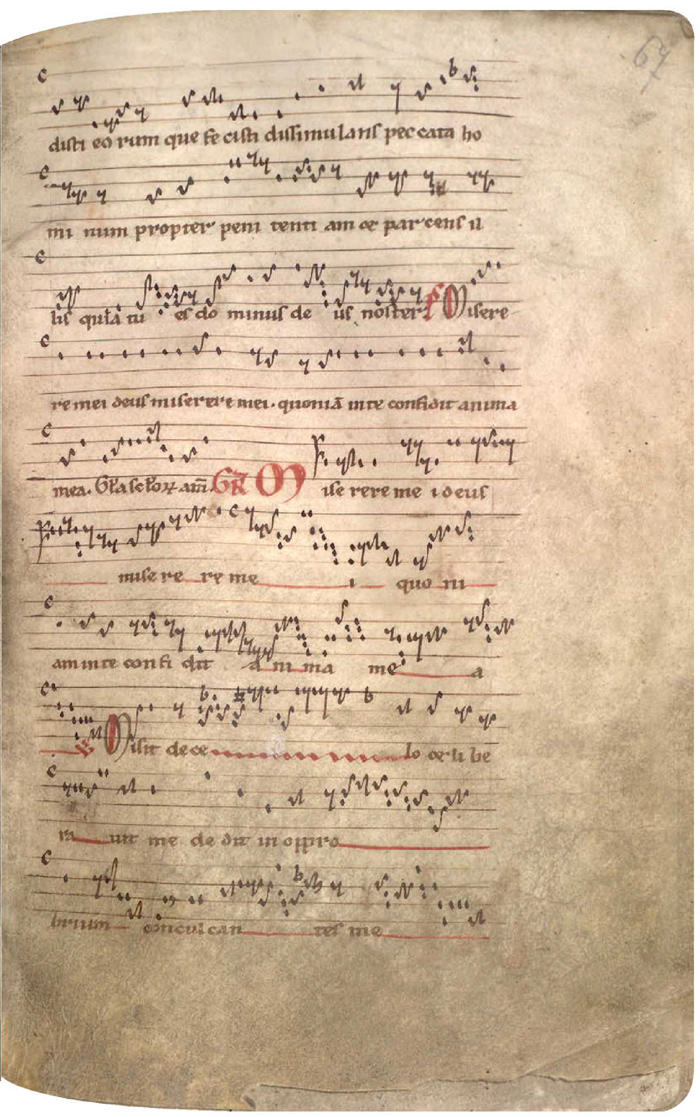 67
disti eo rum que fe cisti dissimulans pec cata ho
mi num propter peni tenti am & par cens il
lis quia tu es do minus de us noster ps Misere
re mei deus miserere mei. quoniā in te confidit anima
mea. Gła seło℞ am̄. GR M ise rere me i deus
mise re re me i quo ni
am in te con fi dit a ni ma me a
V Misit de ce lo & li be
ra uit me de dit in oppro
brium conculcan tes me